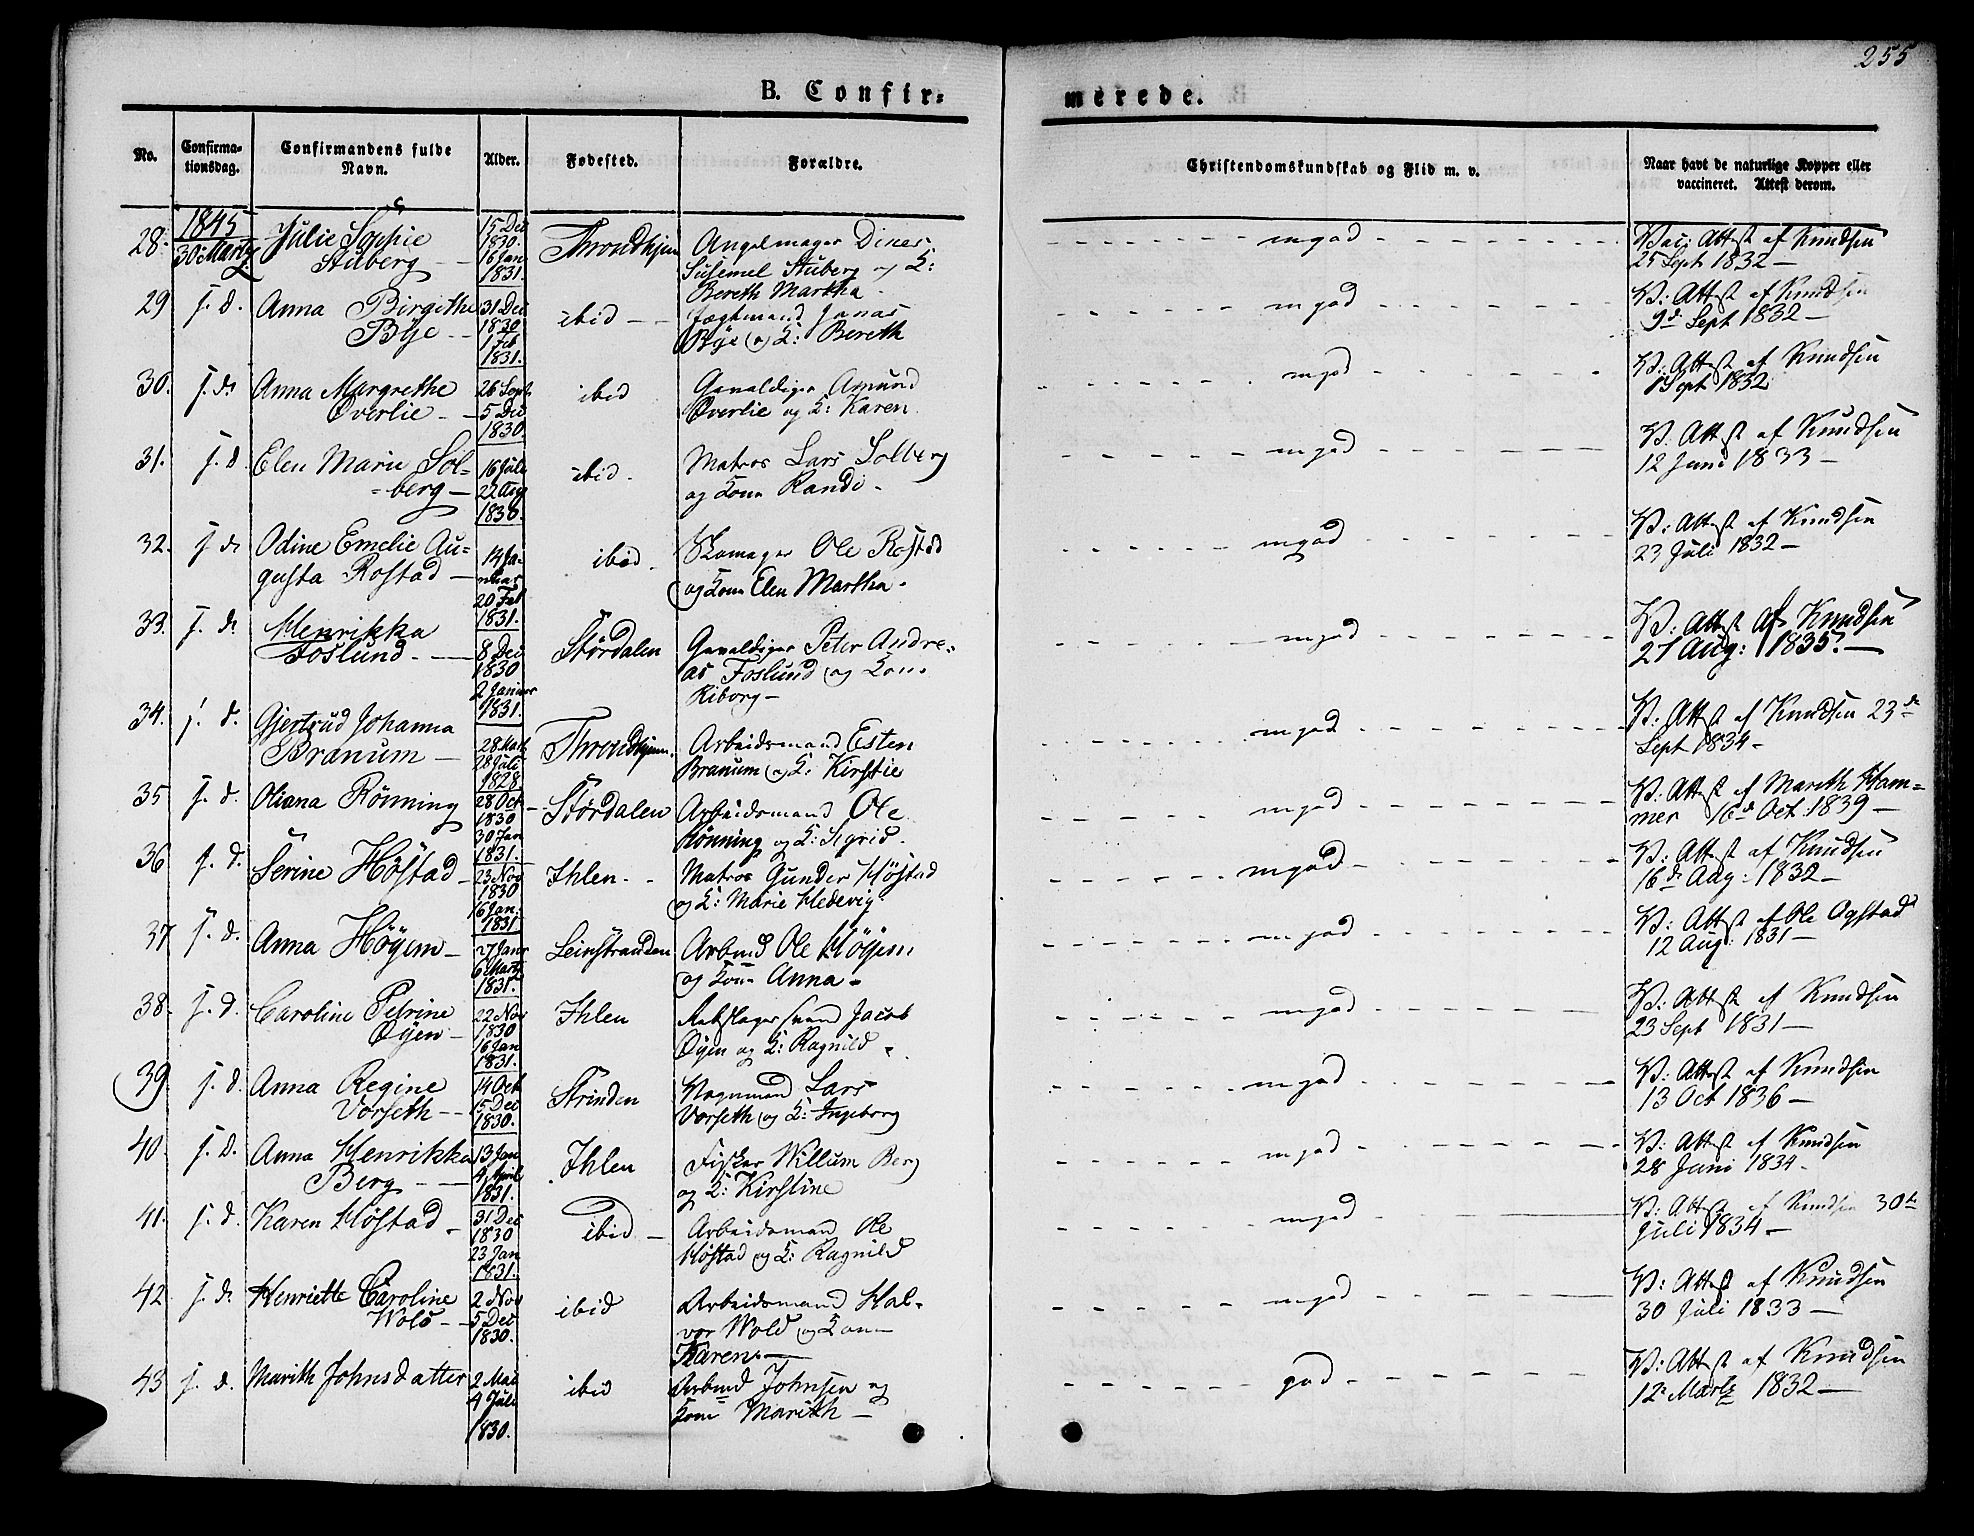 255
B. Confir-
merede.
No.
Confirma-
tionsdag.
Confirmandens fulde
Navn.
Alder.
Fødested.
Forældre.
Christendomskundskab og Flid m. v.
Naar havt de naturlige Kopper eller
vaccineret. Attest derom.
1845
28. 30 Martz Julie Sophie
Stuberg
15 Dec
1830.
16 Jan
1831.
Throndhjem
Angelmager Diner
Susemel Stuberg og K:
Bereth Martha
mgod
Vac: Attest af Knudsen
25 Sept 1832
29 s. d. Anna Birgithe
Bye
31 Dec
1830
1 Feb
1831.
ibid
Jægtmand Jonas
Bye og K: Bereth
mgod
V: Attest af Knudsen
9d Sept 1832
30. s. d. Anna Margrethe
Overlie
26 Sept
5 Dec
1830.
ibid
Gevaldiger Amund
Overlie og K: Karen
mgod
V: Attest af Knudsen
Sept 1832
31. s. d. Elen Marie Sol-
berg
16 Juli
22 Aug
1830.
ibid
Matros Lars Solberg
og Kone Randi
mgod
V. Attest af Knudsen
12 Juni 1833
32. s. d. Odine Emelie Au-
gusta Rostad
14 Ja-
nuar
20 Feb
1831.
ibid
Skomager Ole Rostad
og Kone Elen Martha
mgod
V: Attest af Knudsen
23 Juli 1832
33. s. d. Henrikka
Foslund
8 Dec
1830
2 Januar
1831.
Stördalen
Gevaldiger Peter Andre-
as Foslund og Kone
Kiborg
mgod
V: Attest af Knudsen
21 Aug: 1835.
34. s. d. Gjertrud Johanna
Branum
28 Mart
28 Juli
1828
Throndhjem
Arbeidsmand Esten
Branum og K: Kirstie
mgod
V: Attest af Knudsen 23de
Sept 1834
35 s. d. Oliana Rönning
28 Oct
1830
30 Jan
1831.
Stördalen
Arbeidsmand Ole
Rönning og K: Sigrid
mgod
V: Attest af Mareth Ham-
mer 16d Oct. 1839
36 s. d. Serine Höstad
23 Nov
1830
16 Jan:
1831
Ihlen
Matros Gunder Höstad
og K: Marie Hedevig
mgod
V: Attest af Knudsen
16d Aug: 1832
37 s. d. Anna Höyem
27 Janr
6 Martz
1831.
Leinstranden
Arbmd Ole Höyem
og Kone Anna
mgod
V: Attest af Ole Ogstad
12 Aug: 1831
38. s. d. Caroline Petrine
Oyen
22 Nov
1830
16 Jan
1831.
Ihlen
Rebslagersvend Jacob
Oyen og K: Ragnild
mgod
V: Attest af Knudsen
23 Sept 1831
39. s. d. Anna Regine
Vorseth
14 Oct
15 Dec
1830.
Strinden
Vognmand Lars
Vorseth og K: Ingeborg
mgod
V: Attest af Knudsen
13 Oct 1836
40 s. d. Anna Henrikka
Berg
13 Jan
4 April
1831.
Ihlen
Fisker Willum Berg
og K: Kirstine
mgod
V: Attest af Knudsen
28 Juni 1834
41. s. d. Karen Höstad
31 Dec
1830
23 Jan
1831.
ibid
Arbeidsmand Ole
Höstad og K: Ragnild
mgod
V: Attest af Knudsen 30te
Juli 1834
42 s. d. Henriette Caroline
Wold
2 Nov
5 Dec
1830.
ibid
Arbeidsmand Hal-
vor Wold og Kone
Karen
mgod
V: Attest af Knudsen
30 Juli 1833
43 s. d. Marith Johnsdatter
2 Mai
4 Juli
1830.
ibid
Arbmd Johnsen og
Kone Marith
god
V: Attest af Knudsen
12 Martz 1832